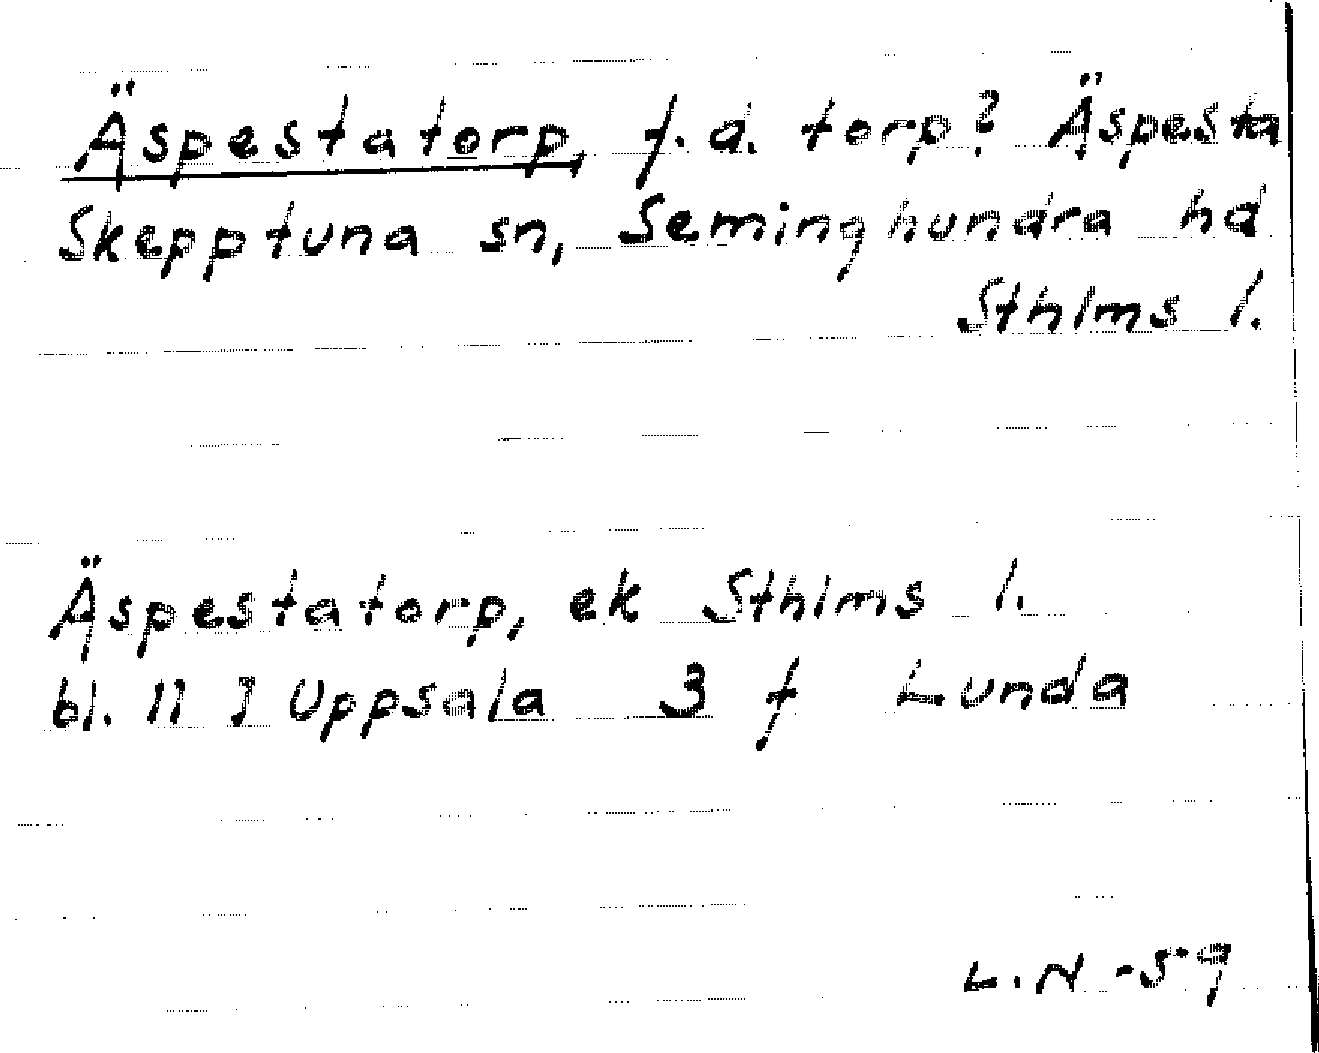 Äspestatorp, f.d. torp? Äspesta
Skepptuna sn, Seminghundra hd
Sthlms l.
Äspestatorp, ek Sthlms l.
bl. 11 I Uppsala 3 f Lunda
L.N -59